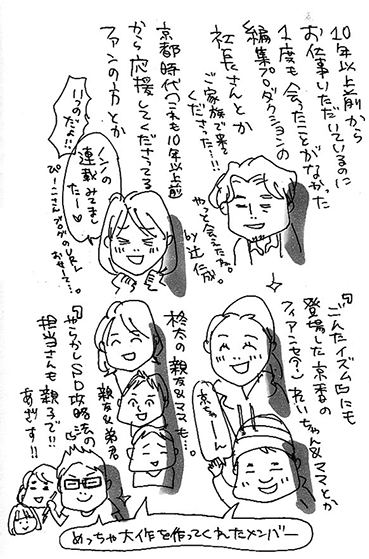 10年以上前から
お仕事いただいているのに
1度も会ったことがなかった
編集プロダクションの
社長さんとか
ご家族で来て
くださった…!!
やっと会えたね。
by 辻仁成
京都時代(これも10年以上前
から応援してくださってる
ファンの方とか
いつのだよ!!
ノンノの
連載みてまし
たー♡
ぴーこさんブログのURL
おせーて…。
『ごんたイズム』にも
登場した京香の
フィアンセ(?)れいちゃん&ママとか
京ちゃーん
柊太の親友&ママも…。
親友&弟君
『やらかしSD攻略法』の
担当さんも親子で!!
あざす!!
めっちゃ大作を作ってくれたメンバー